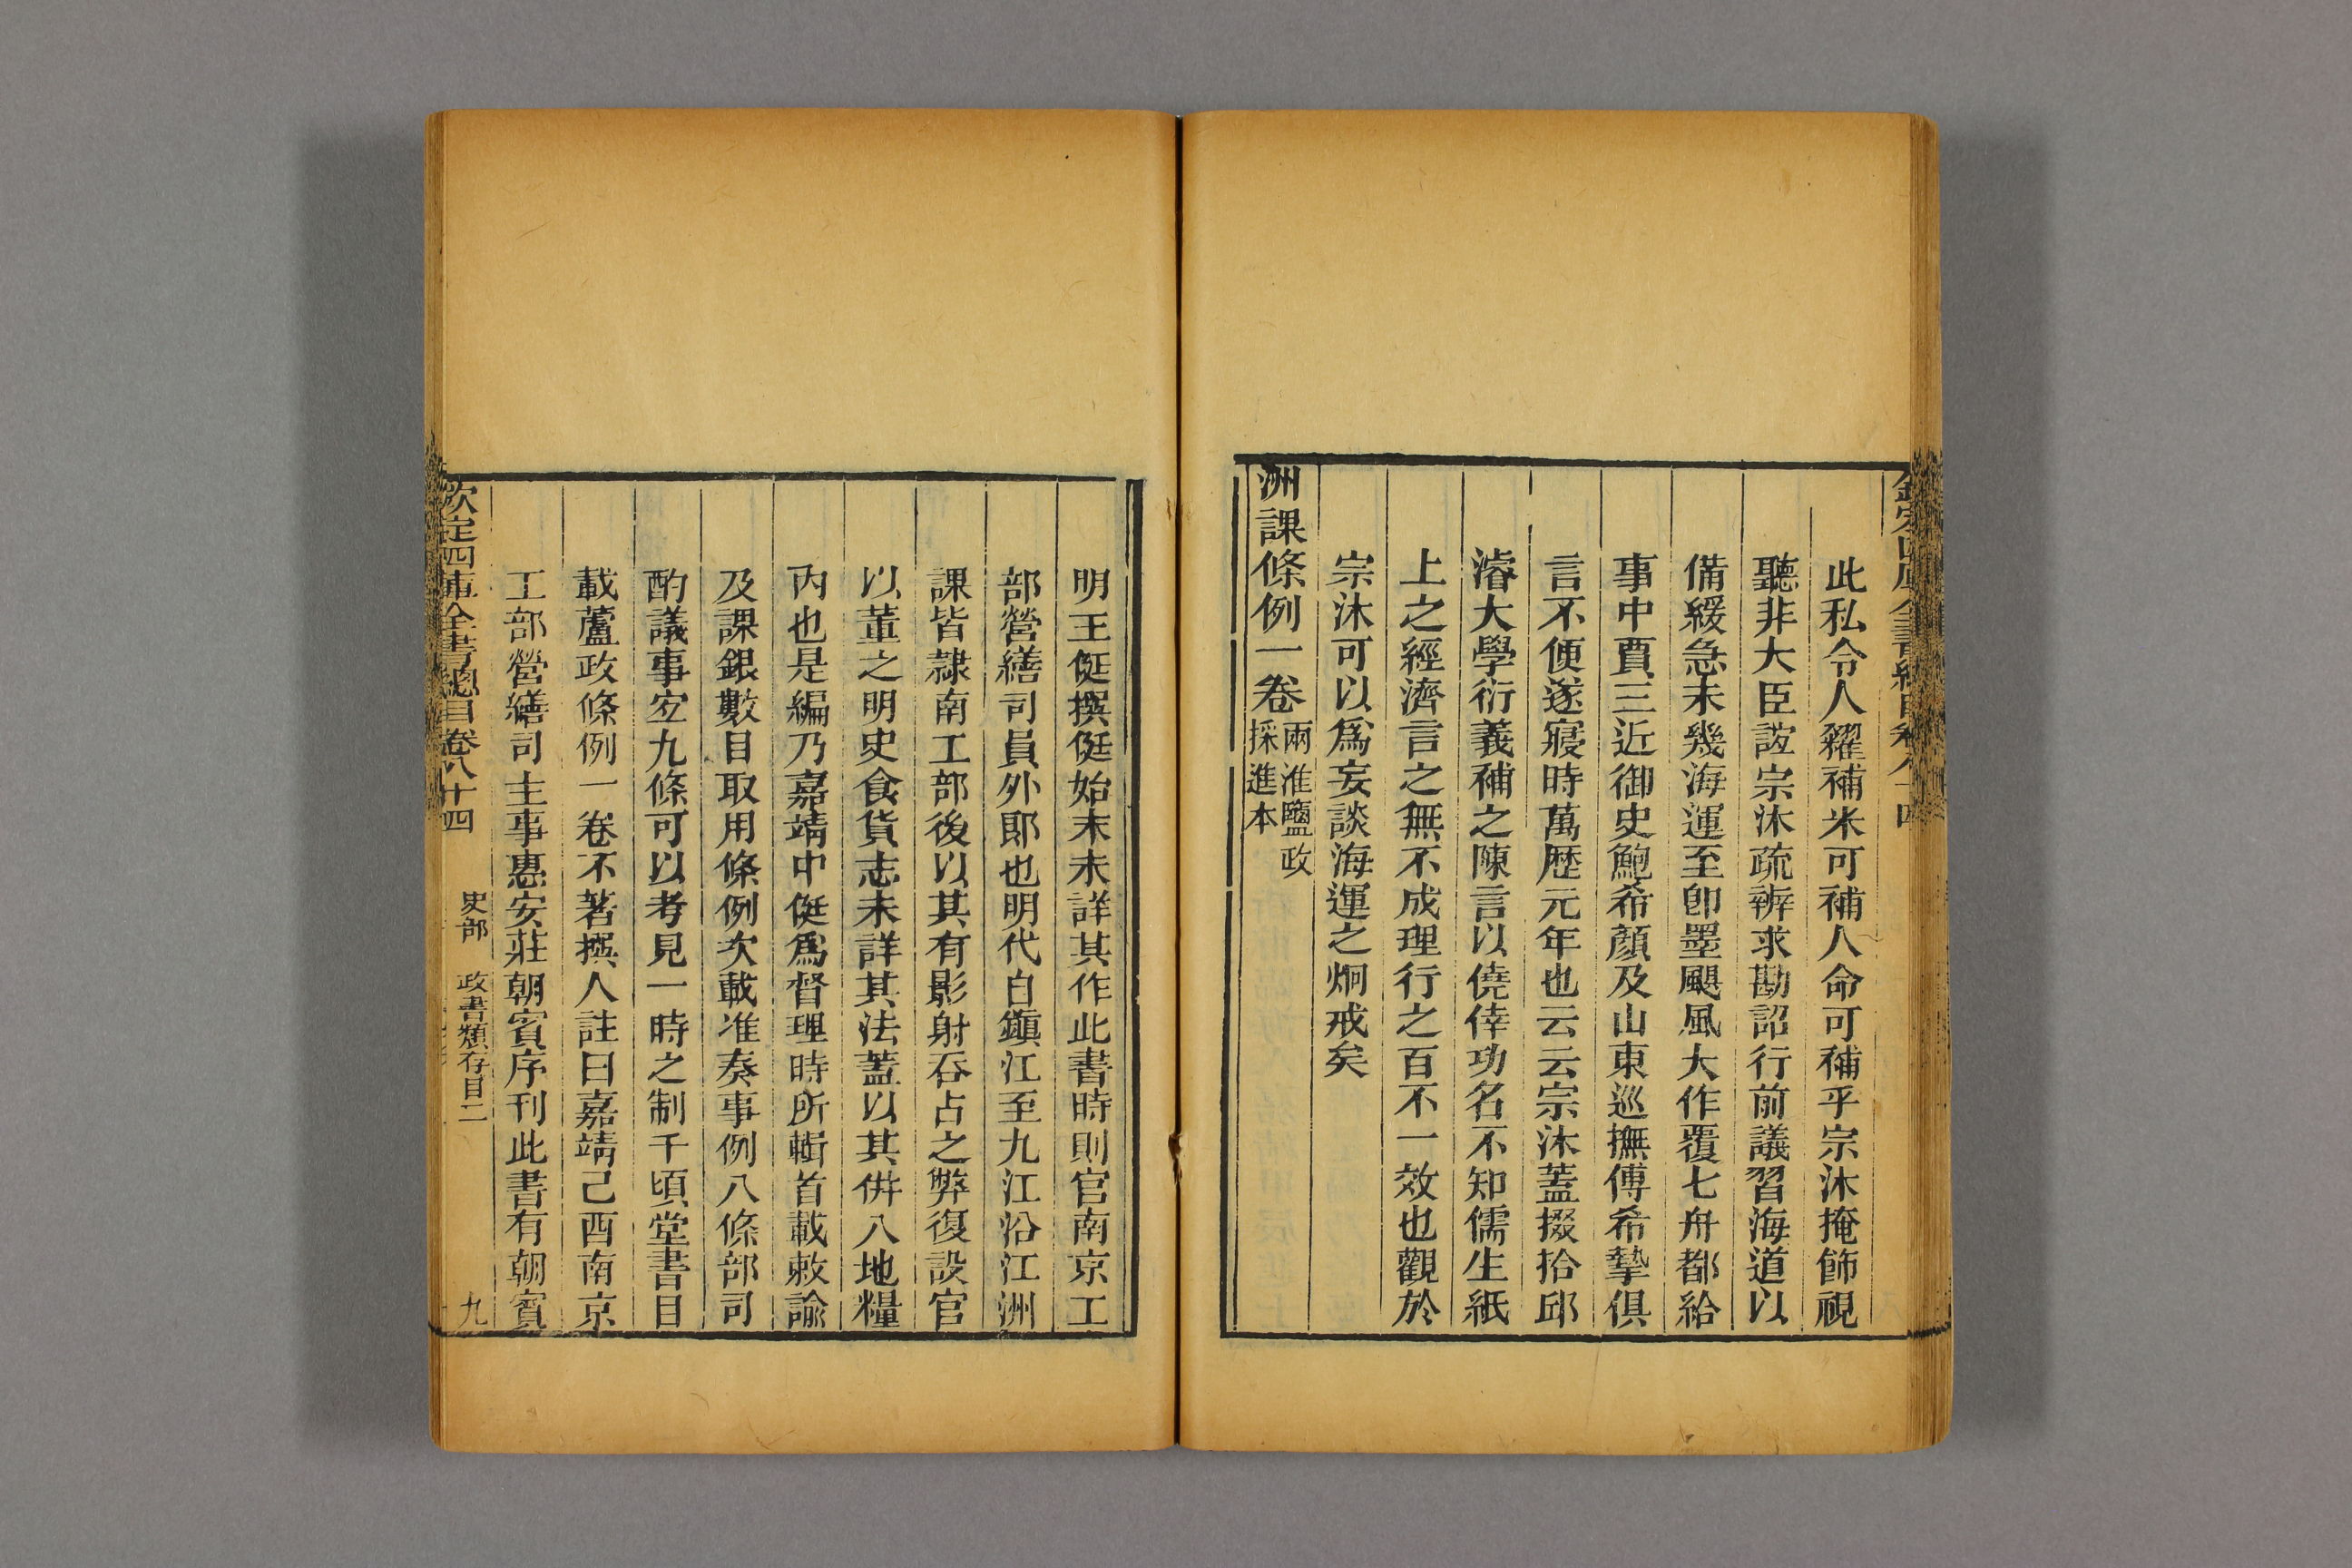 此私令人糴補米可補人命可補乎宗沐掩飾視
聽非大臣誼宗沐疏辨求勘詔行前議習海道以
備緩急未幾海運至卽墨颶風大作覆七舟都給
事中賈三近御史鮑希顏及山東巡撫傅希摯俱
言不便遂寢時萬歴元年也云云宗沐蓋掇拾邱
濬大學衍義補之陳言以僥倖功名不知儒生紙
上之經濟言之無不成理行之百不一效也觀於
宗沐可以爲妄談海運之炯戒矣
洲課條例一卷兩淮鹽政
採進本
明王侹撰侹始末未詳其作此書時則官南京工
部營繕司員外郎也明代自鎮江至九江沿江洲
課皆隷南工部後以其有影射吞占之弊復設官
以董之明史食貨志未詳其法蓋以其倂入地糧
內也是編乃嘉靖中侹爲督理時所輯首載敕諭
及課銀數目取用條例次載准奏事例八條部司
酌議事宐九條可以考見一時之制千頃堂書目
載蘆政條例一卷不著撰人註曰嘉靖己酉南京
工部營繕司主事惠安莊朝賓序刊此書有朝賓
欽定四庫全書總目卷八十四 史部 政書類存目二 九